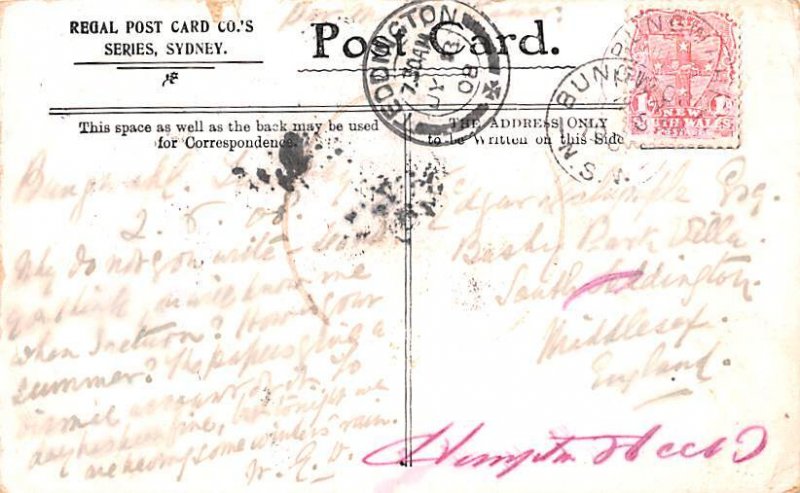 REGAL POST CARD CO.'S
SERIES, SYDNEY.
Post Card.
TEDDINGTON
7.30AM
JY
08
BUNGWAHL
N.S.W.
1D
NEW
SOUTH WALES
This space as well as the back may be used
for Correspondence.
THE ADDRESS ONLY
to be Written on this Side
Bungwahl.
2. 6. 08.
Why do not you write
you think you will know me
when I return? How is your
summer? The papers give a
dismal account of it. To
day has been fine, but tonight we
are having some winters rain.
Edgar Esq.
Bushy Park Villa.
South Teddington.
Middlesex.
England.
Hampton